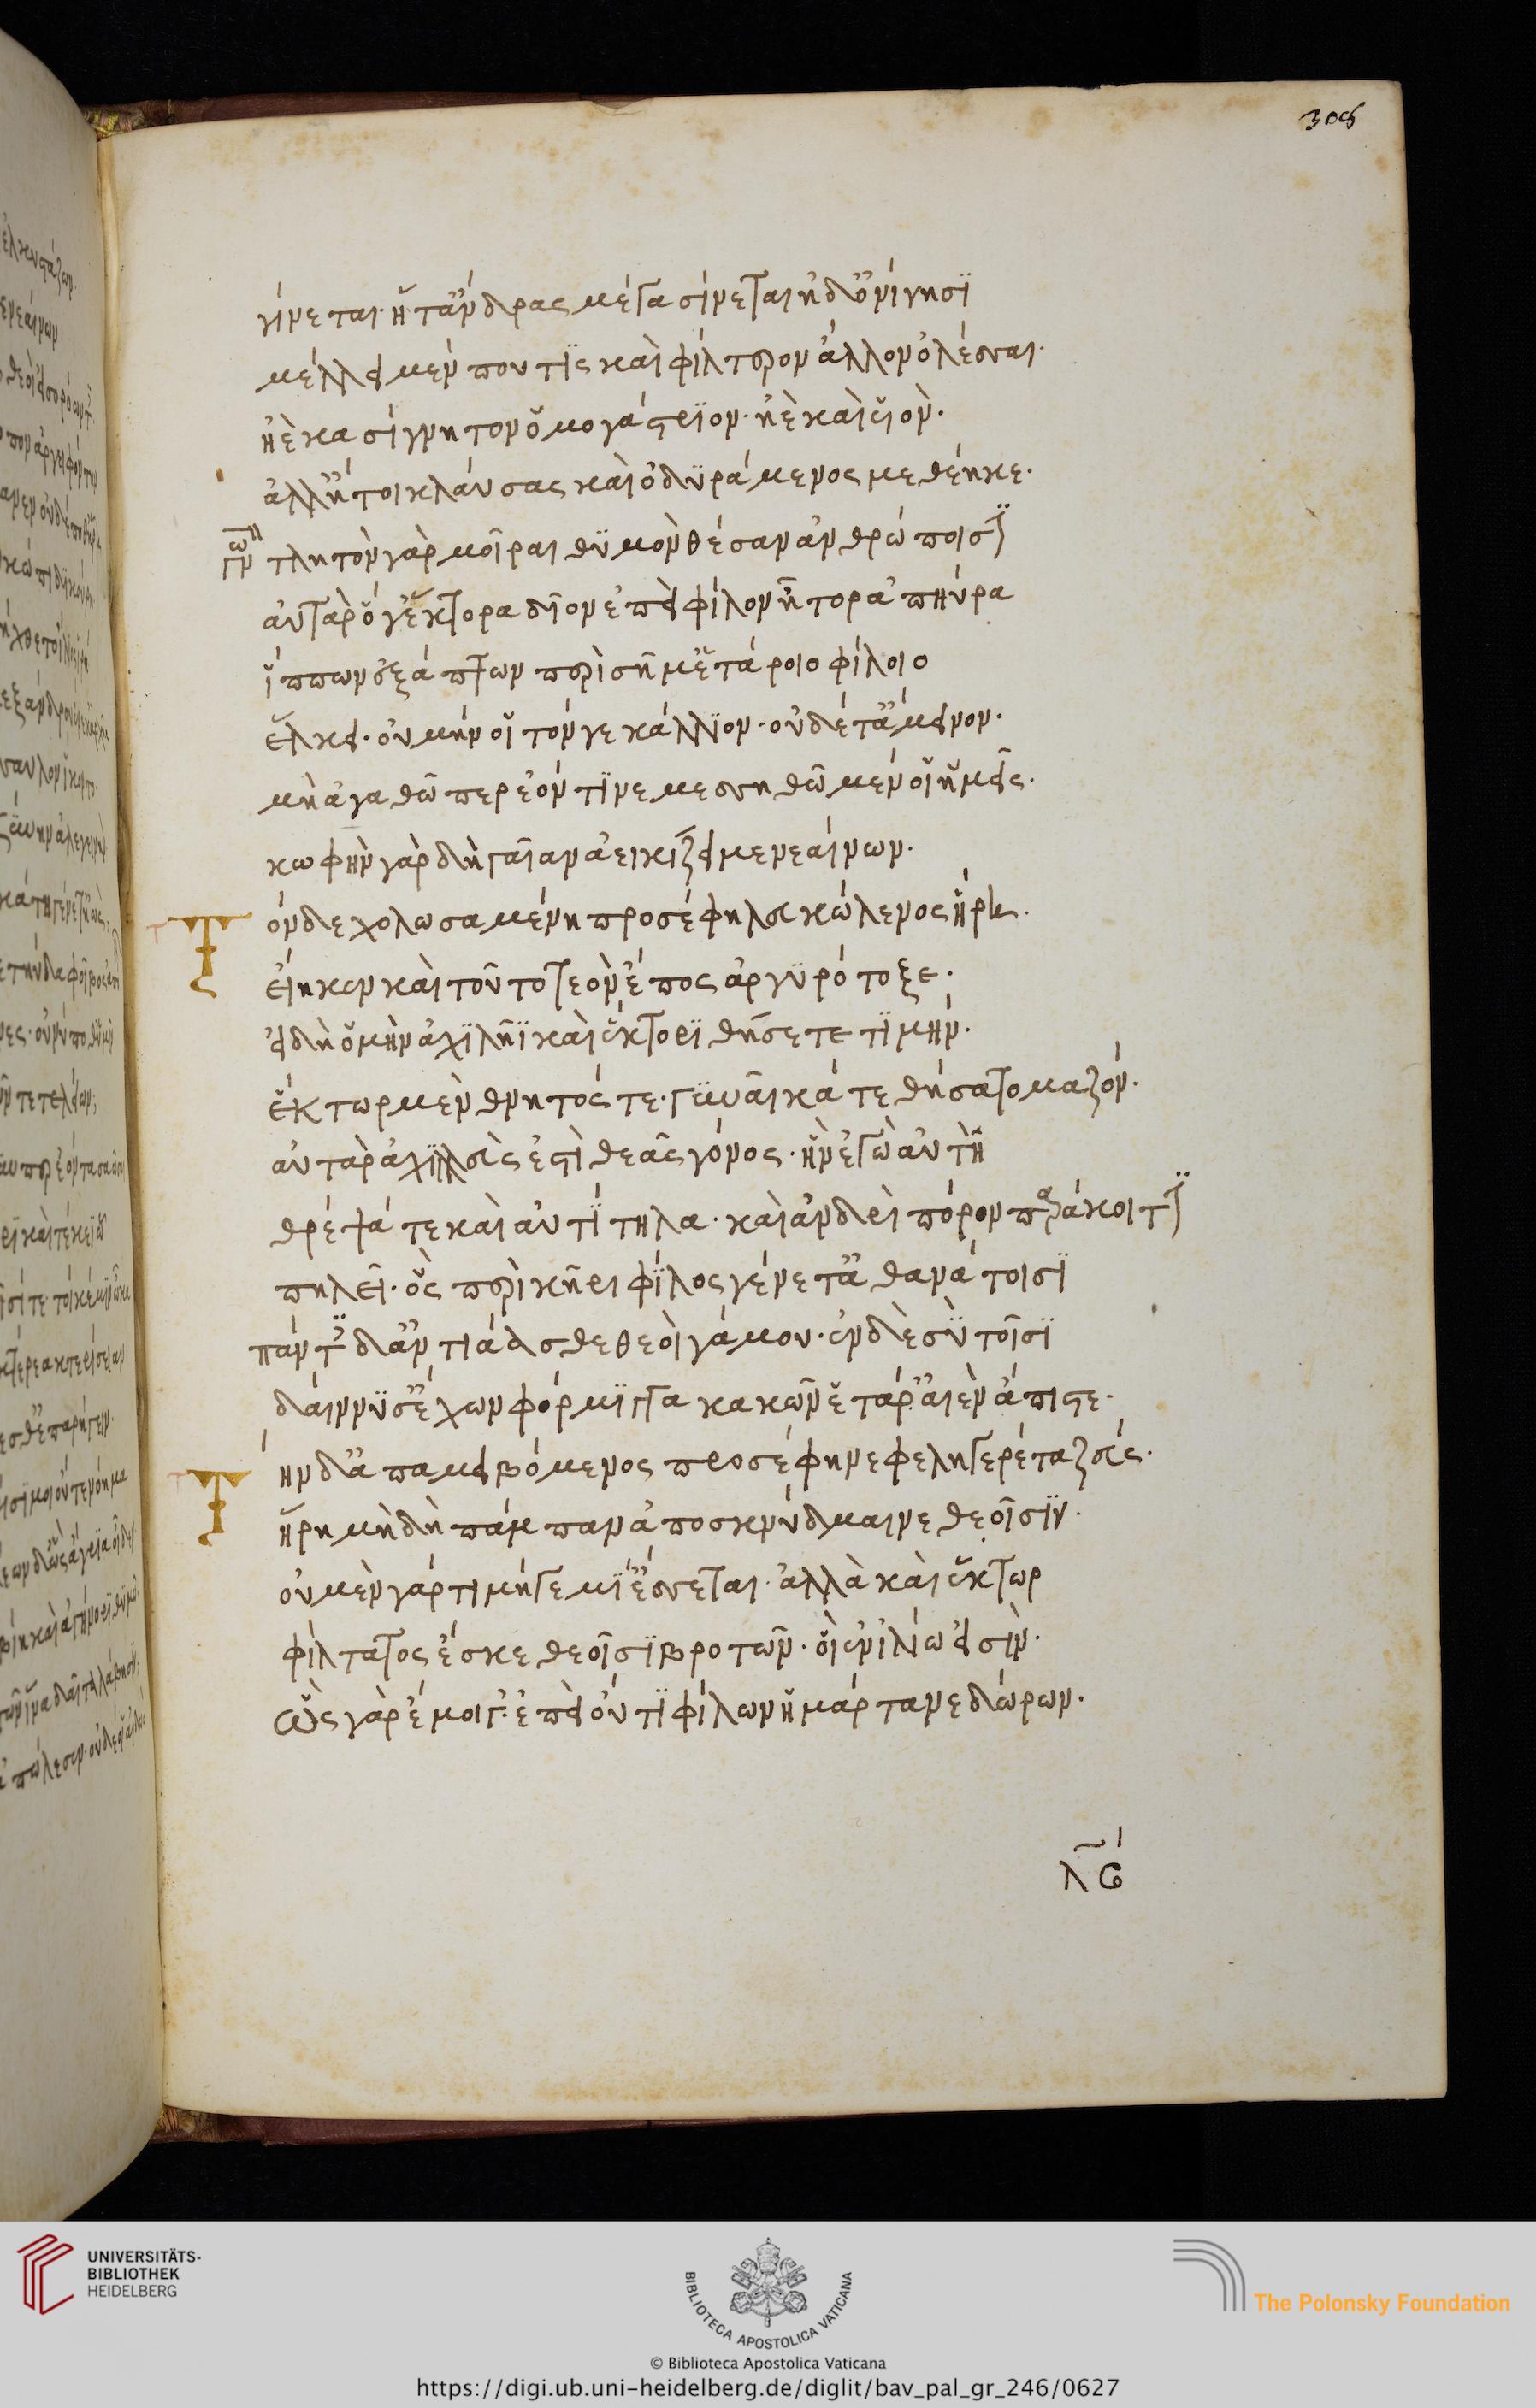 308
γίνεται· ἥ τ' ἄνδρας μέγα σίνεται ἠδ' ὀνίνησϊ
μέλλει μέν που τῒς καὶ φίλτερον ἄλλον ὀλέσσαι·
ἠὲ κασίγνητον ὁμογάστρϊον· ἠὲ καὶ υἱὸν·
ἀλλ' ἤτοι κλαύσας καὶ ὀδϋράμενος μεθέηκε·
τλητὸν γὰρ μοῖραι θϋμὸν θέσαν ἀνθρώποισϊ
αὐτὰρ ὅγ' ἕκτορα δῖον ἐπεὶ φίλον ἦτορ ἀπηύρα
ἵππων ἐξάπτων περὶ σῆμ' ἑτάροιο φίλοιο
ἕλκει· οὐ μήν οἱ τόνγε κάλλϊον· οὐδέ τ' ἄμεινον·
μὴ ἀγαθῶ περ ἐόντϊ νεμεσσηθῶμέν οἱ ἡμεῖς·
κωφὴν γὰρ δὴ γαῖαν ἀεικίζει μενεαίνων·
Τόνδε χολωσαμένη προσέφη λευκώλενος ἥρη·
εἴη κεν καὶ τοῦτο τεὸν ἔπος ἀργϋρότοξε·
εἰ δὴ ὁμὴν ἀχϊλῆϊ καὶ ἕκτορϊ θήσετε τϊμήν·
ἕκτωρ μὲν θνητός τε· γϋναῖκά τε θήσατο μαζόν·
αὐτὰρ ἀχϊλλεὺς ἐστὶ θεᾶς γόνος· ἣν ἐγὼ αὐτὴ
θρέψά τε καὶ ἀντΐτηλα· καὶ ἀνδρὶ πόρον παράκοιτϊν
πηλέϊ· ὃς περὶ κῆρι φΐλος γένετ' ἀθανάτοισϊ
πάντ' δ' ἀντιάασθε θεοὶ γάμου· ἐν δὲ σῢ τοῖσϊ
δαίνϋσ' ἔχων φόρμϊγγα κακῶν ἕταρ' αἰὲν ἄπιστε·
Τήν δ' ἀπαμειβόμενος προσέφη νεφεληγερέτα ζεύς·
ἥρη μὴ δὴ πάμπαν ἀποσκρύδμαινε θεοῖσϊν·
οὐ μὲν γὰρ τιμή γε μϊ' ἔσσεται· ἀλλὰ καὶ ἕκτωρ
φίλτατος ἔσκε θεοῖσϊ βροτῶν· οἳ ἐν ἰλίω εἰσὶν·
ὣς γὰρ ἔμοιγ· ἐπεὶ οὔ τϊ φίλων ἡμάρτανε δώρων·
UNIVERSITÄTS-
BIBLIOTHEK
HEIDELBERG
BIBLIOTECA APOSTOLICA VATICANA
The Polonsky Foundation
© Biblioteca Apostolica Vaticana
https://digi.ub.uni-heidelberg.de/diglit/bav_pal_gr_246/0627